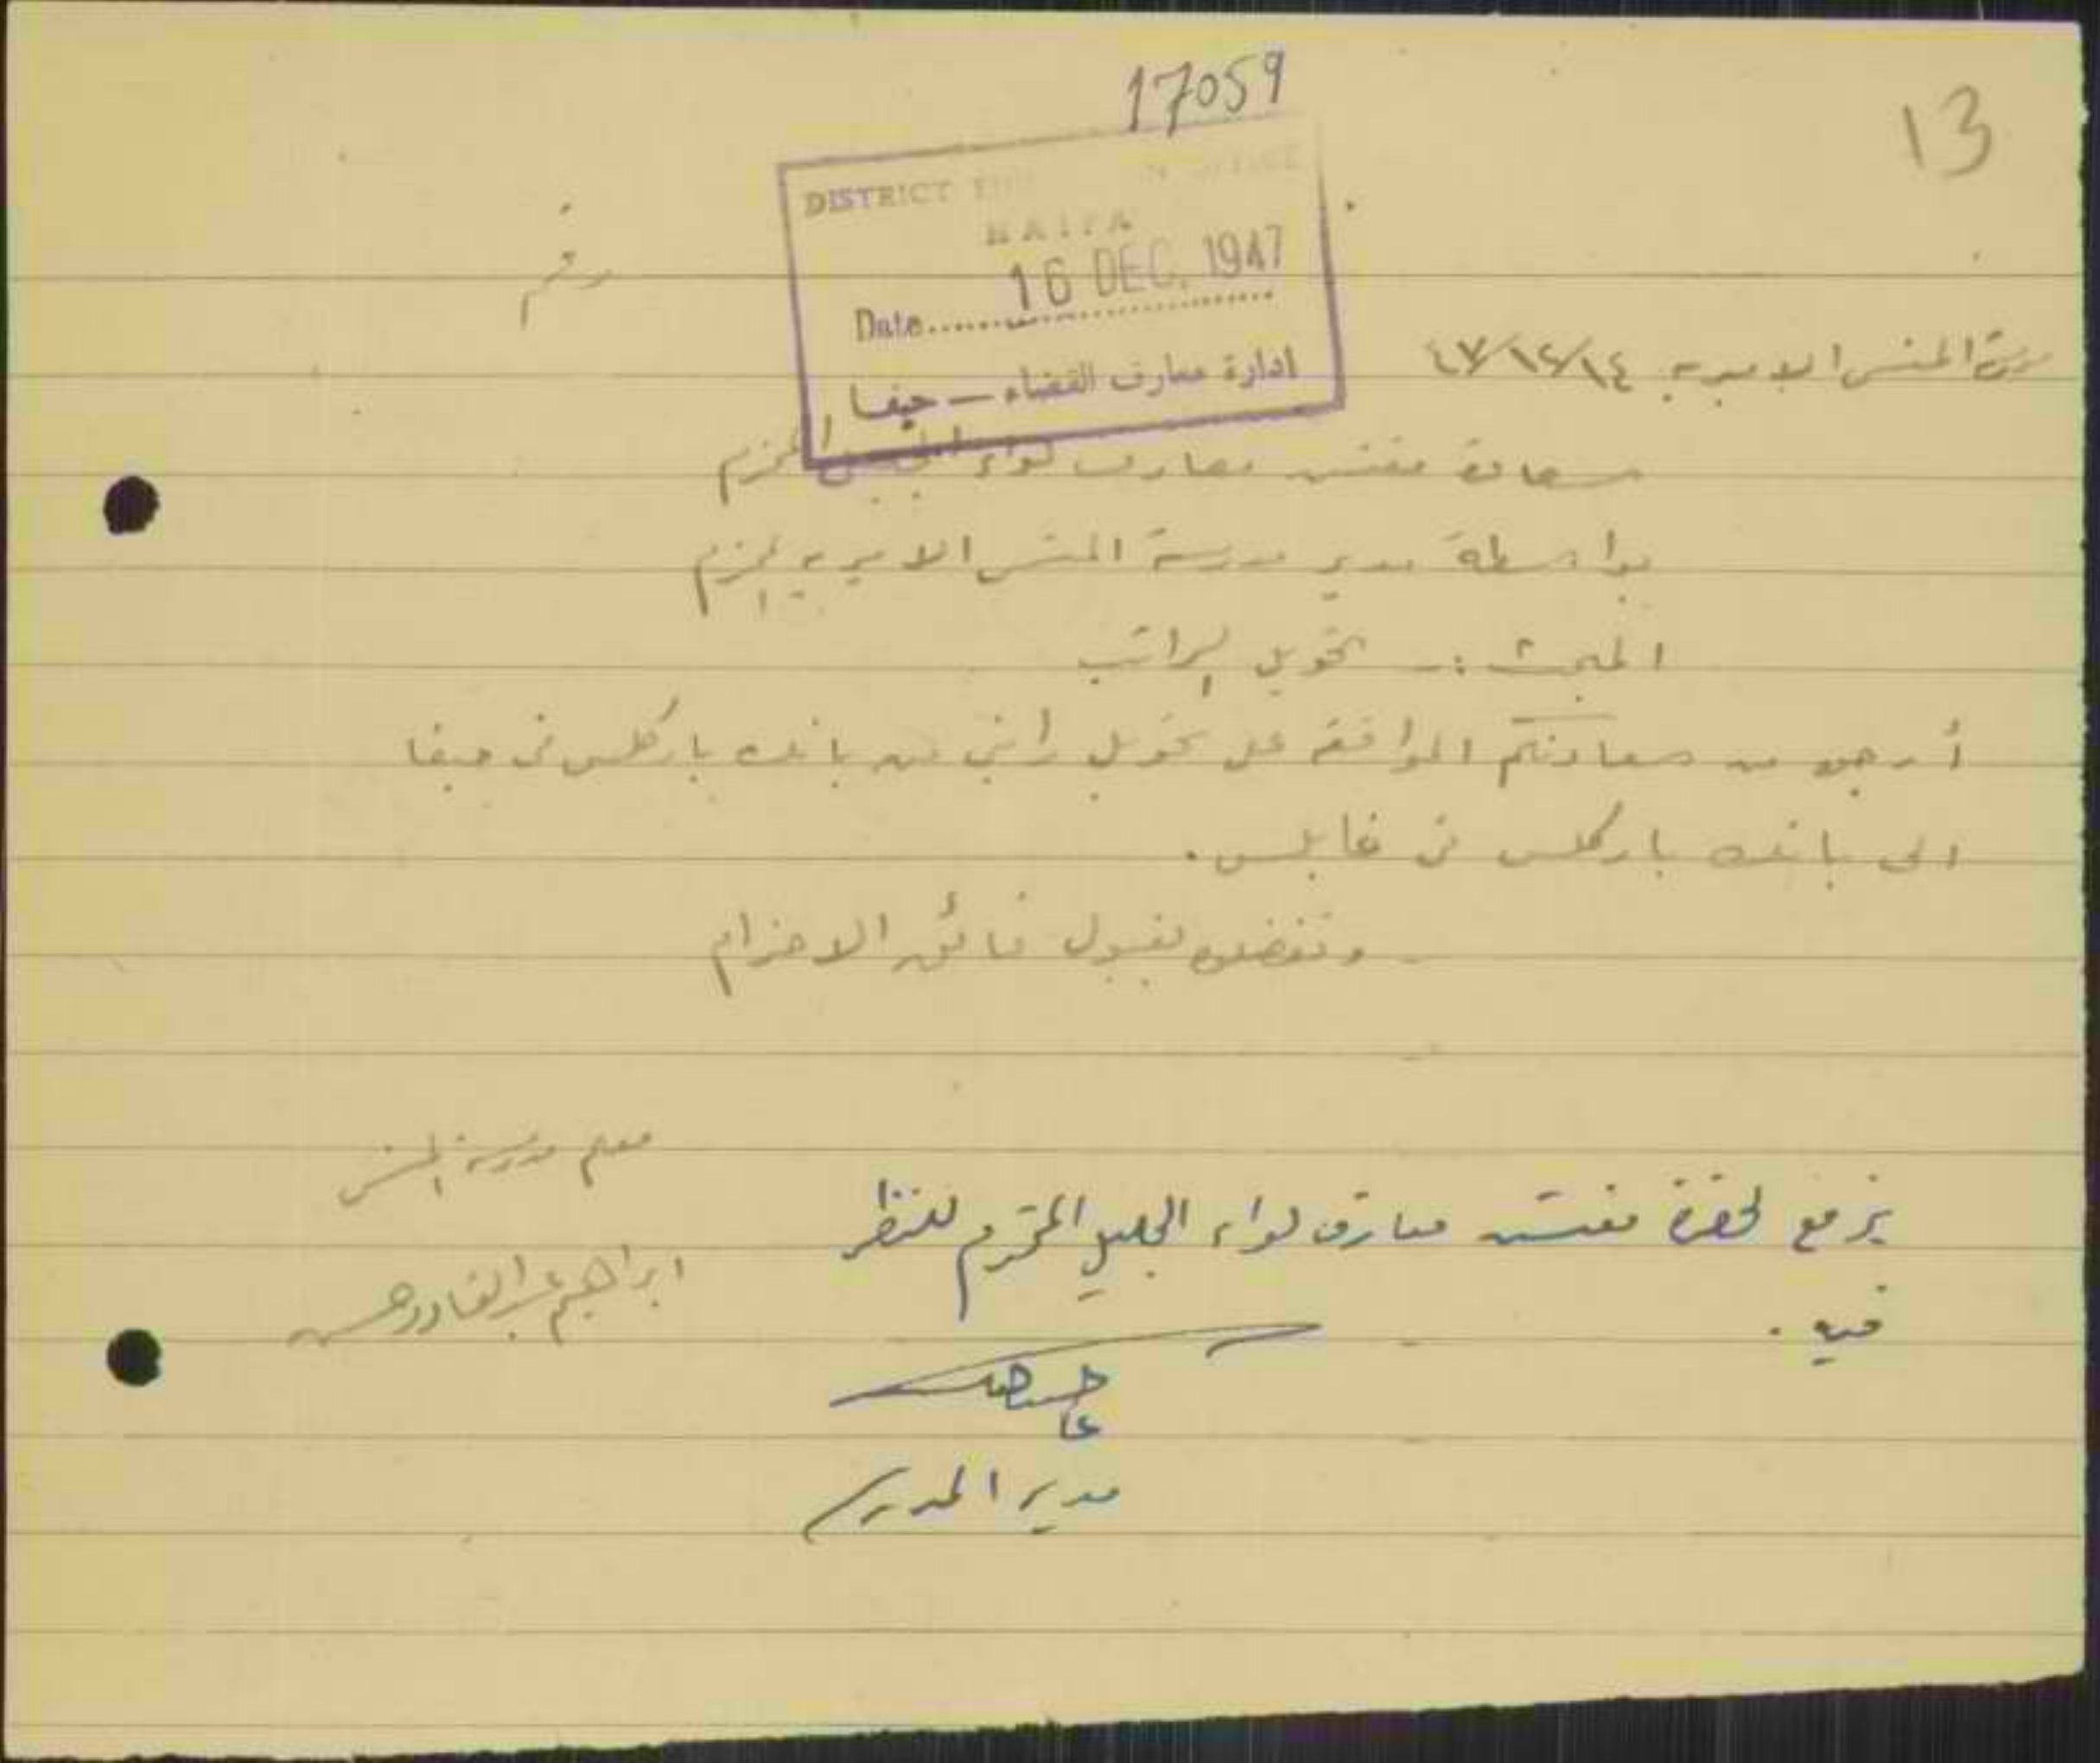 17059
13
DISTRICT
HAIFA
16 DEC. 1947
Date
ادارة معارف القضاء — حيفا
رقم
مدرسة المنسي الاميرية ١٤/١٢/٤٧
سعادة مفتش معارف لواء الجليل المحترم
بواسطة مدير مدرسة المنسي الاميرية المحترم
المبحث :- تحويل الراتب
أرجو من سعادتكم الموافقة على تحويل راتبي من بانك باركلس في حيفا
الى بانك باركلس في نابلس .
وتفضلوا بقبول فائق الاحترام
معلم مدرسة المنسي
ابراهيم عبد القادر حسن
يرفع لحضرة مفتش معارف لواء الجليل المحترم للنظر
فيه .
مدير المدرسة